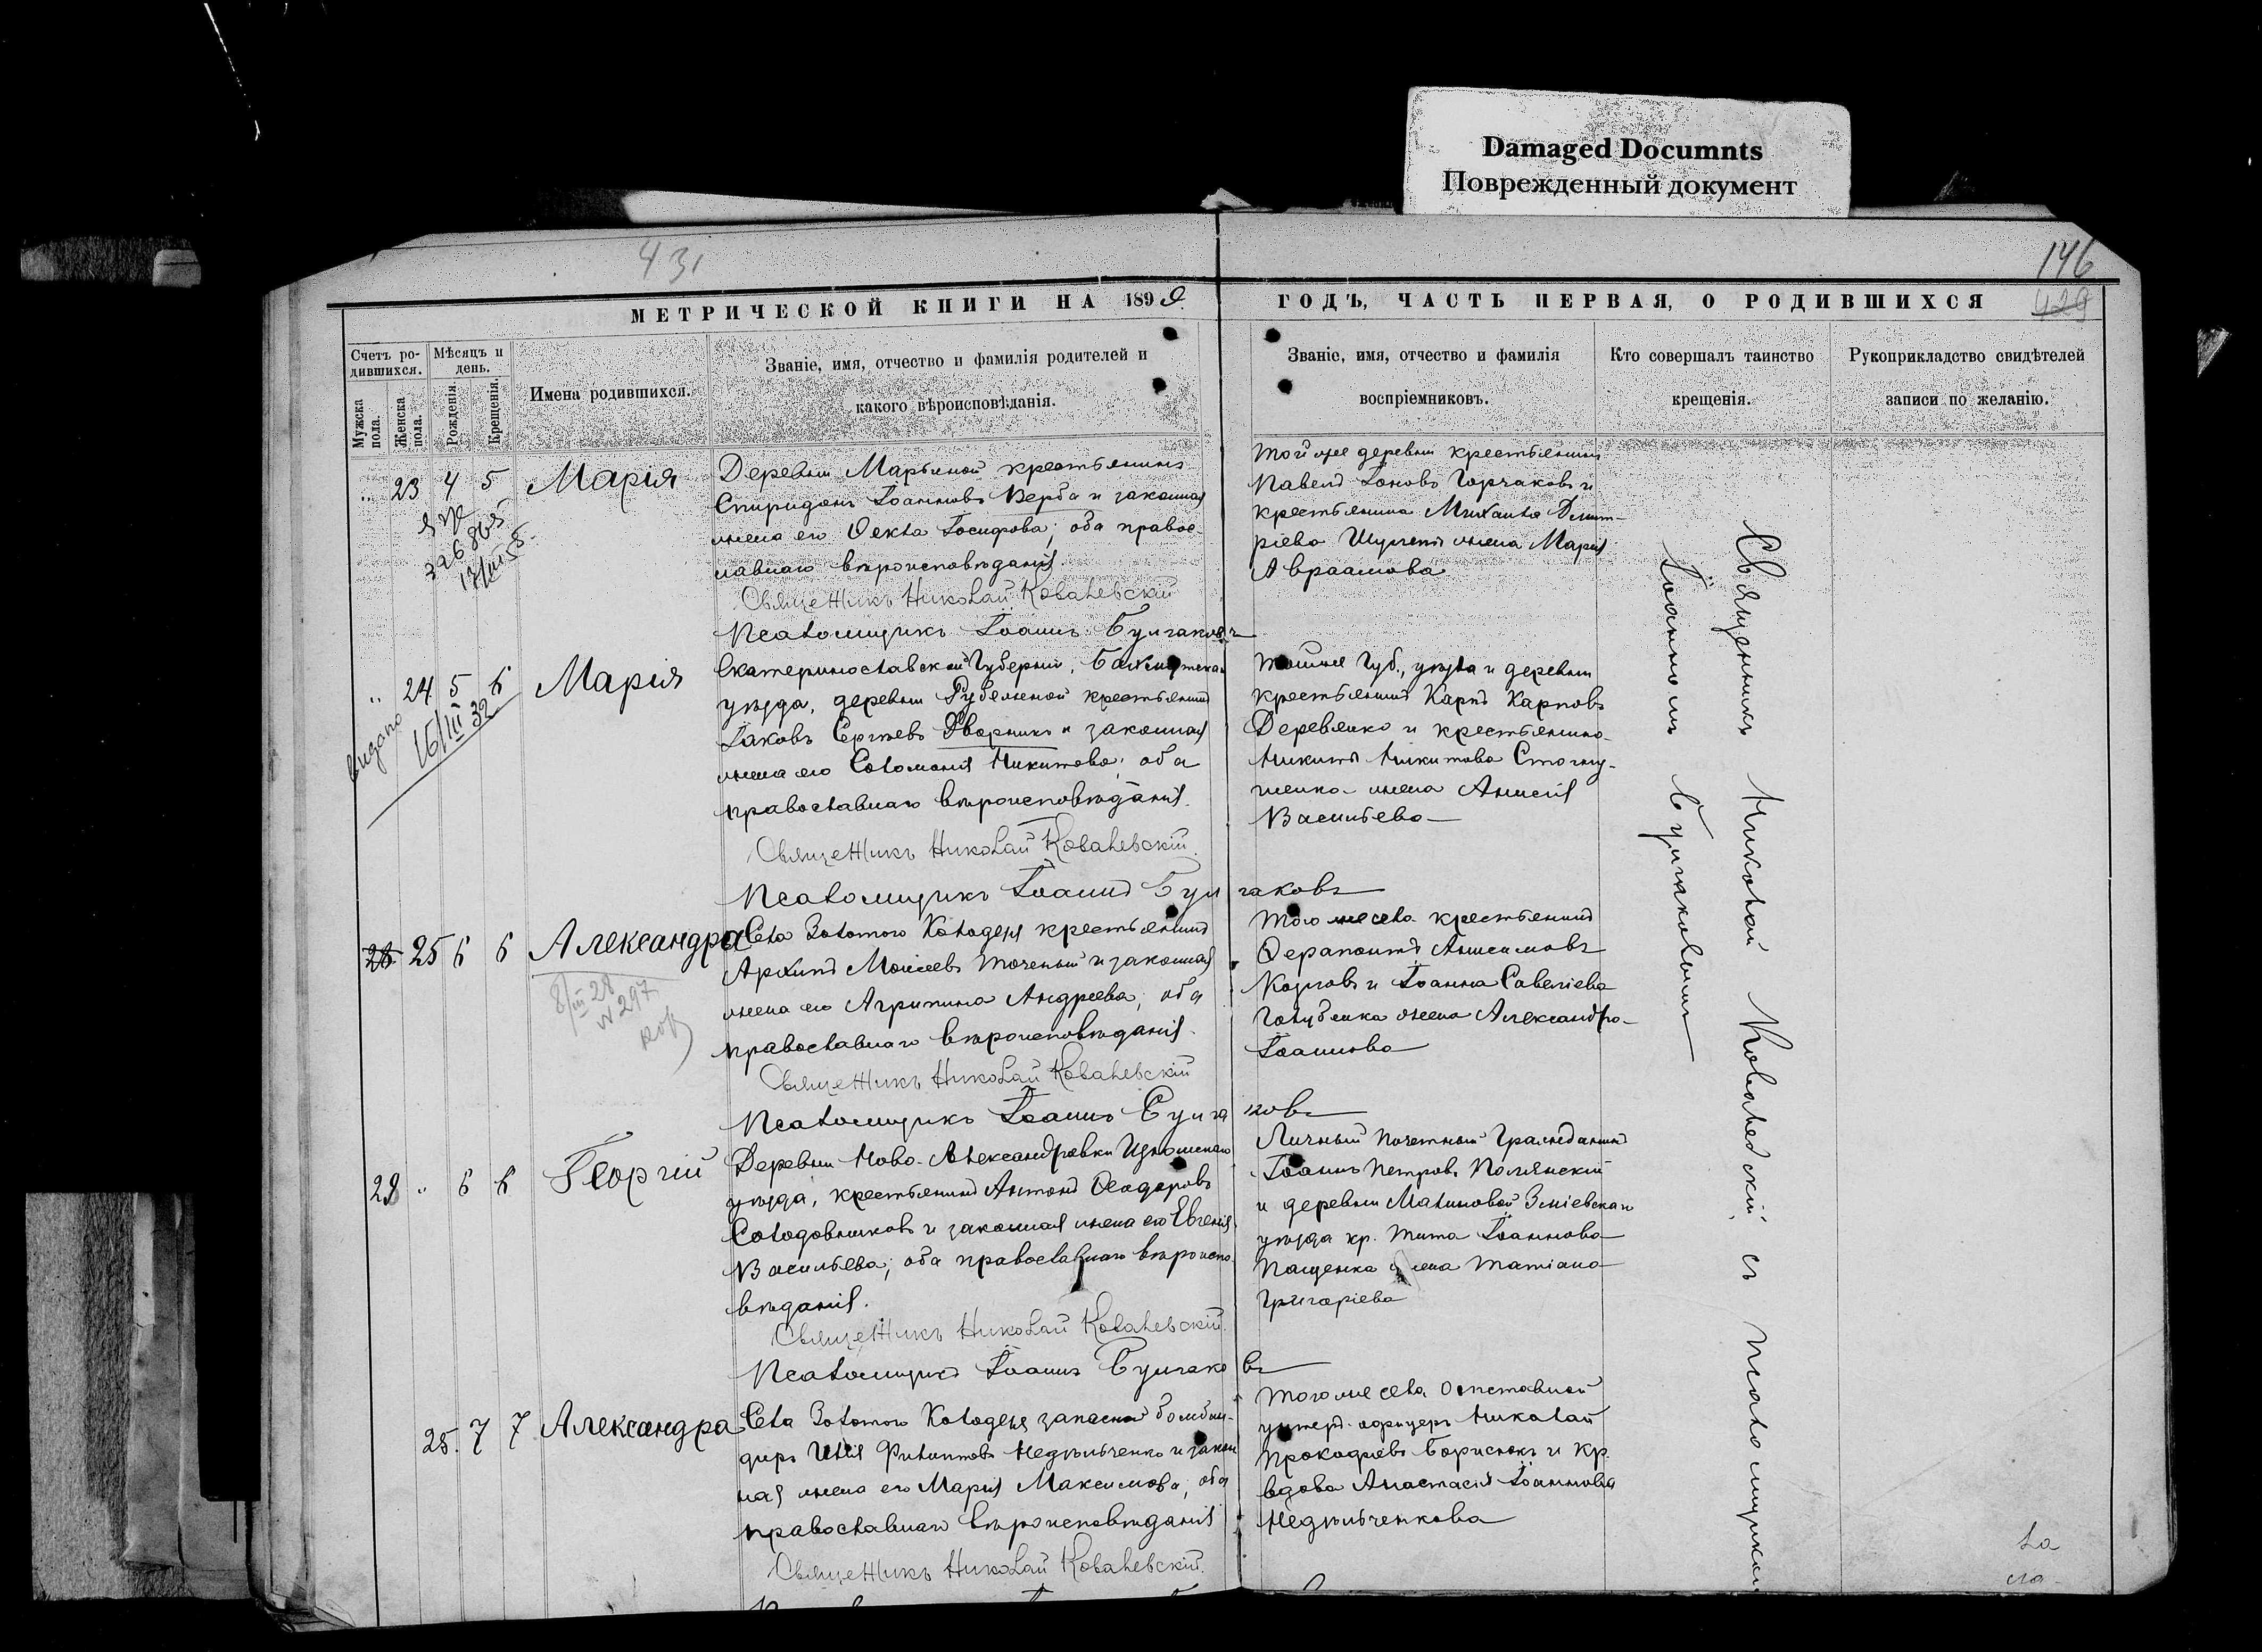 Damaged Documnts
Поврежденный документ
431
146
429
МЕТРИЧЕСКОЙ КНИГИ НА 1899
ГОДЪ, ЧАСТЬ ПЕРВАЯ, О РОДИВШИХСЯ
Счетъ ро-
дившихся.
Мѣсяцъ и
день.
Мужска
пола.
Женска
пола.
Рожденія.
Крещенія.
Имена родившихся.
Званіе, имя, отчество и фамилія родителей и
какого вѣроисповѣданія.
Званіе, имя, отчество и фамилія
воспріемниковъ.
Кто совершалъ таинство
крещенія.
Рукоприкладство свидѣтелей
записи по желанію.
„ 23 4 5 Марія
Деревни Марьиной крестьянинъ
Спиридонъ Іоанновъ Верба и законная
жена его Фекла Іосифова; оба право-
славнаго вѣроисповѣданія.
Священникъ Николай Ковалевскій
Псаломщикъ Іоаннъ Булгаковъ
Той же деревни крестьянинъ
Павелъ Іоновъ Горчаковъ и
крестьянина Михаила Димит-
ріева жена Марія
Авраамова
„ 24 5 6 Марія
видано
16/III 32
Екатеринославской Губерніи, Бахмутскаго
уѣзда, деревни Рубежной крестьянинъ
Іаковъ Сергѣевъ Дворникъ и законная
жена его Соломонія Никитова; оба
православнаго вѣроисповѣданія.
Священникъ Николай Ковалевскій.
Псаломщикъ Іоаннъ Булгаковъ
Той же Губ., уѣзда и деревни
крестьянинъ Карпъ Карповъ
Деревянко и крестьянина
Никиты Никитова
жена Анисія
Васильева
25 6 6 Александра
8/III 28
N 297
Села Золотого Колодезя крестьянинъ
Архипъ Моисеевъ Точеный и законная
жена его Агрипина Андреева; оба
православнаго вѣроисповѣданія.
Священникъ Николай Ковалевскій
Псаломщикъ Іоаннъ Булгаковъ
Того же села крестьянинъ
Ферапонтъ Анисимовъ
Козловъ и Іоанна Савеліева
Голубенка жена Александра
Іоаннова
29 „ 6 6 Георгій
Деревни Ново-Александровки Изюмскаго
уѣзда, крестьянинъ Антонъ Феодоровъ
Солодовниковъ и законная жена его Евгенія
Васильева; оба православнаго вѣроиспо-
вѣданія.
Священникъ Николай Ковалевскій.
Псаломщикъ Іоаннъ Булгаковъ
Личный почетный Гражданинъ
Іоаннъ Петровъ Полянскій
и деревни Малиновой Зміевскаго
уѣзда кр. Тита Іоаннова
Пащенка жена Татіана
Григоріева
25. 7 7 Александра
Села Золотого Колодезя запасной бомбан-
диръ Илія Филипповъ Недѣльченко и закон-
ная жена его Марія Максимова; оба
православнаго вѣроисповѣданія
Священникъ Николай Ковалевскій.
Того же села отставной
унтеръ-офицеръ Николай
Прокофіевъ Борисюкъ и кр.
вдова Анастасія Іоаннова
Недѣльченкова
Священникъ Николай Ковалевскій, съ псаломщикомъ
Іоанномъ Булгаковымъ